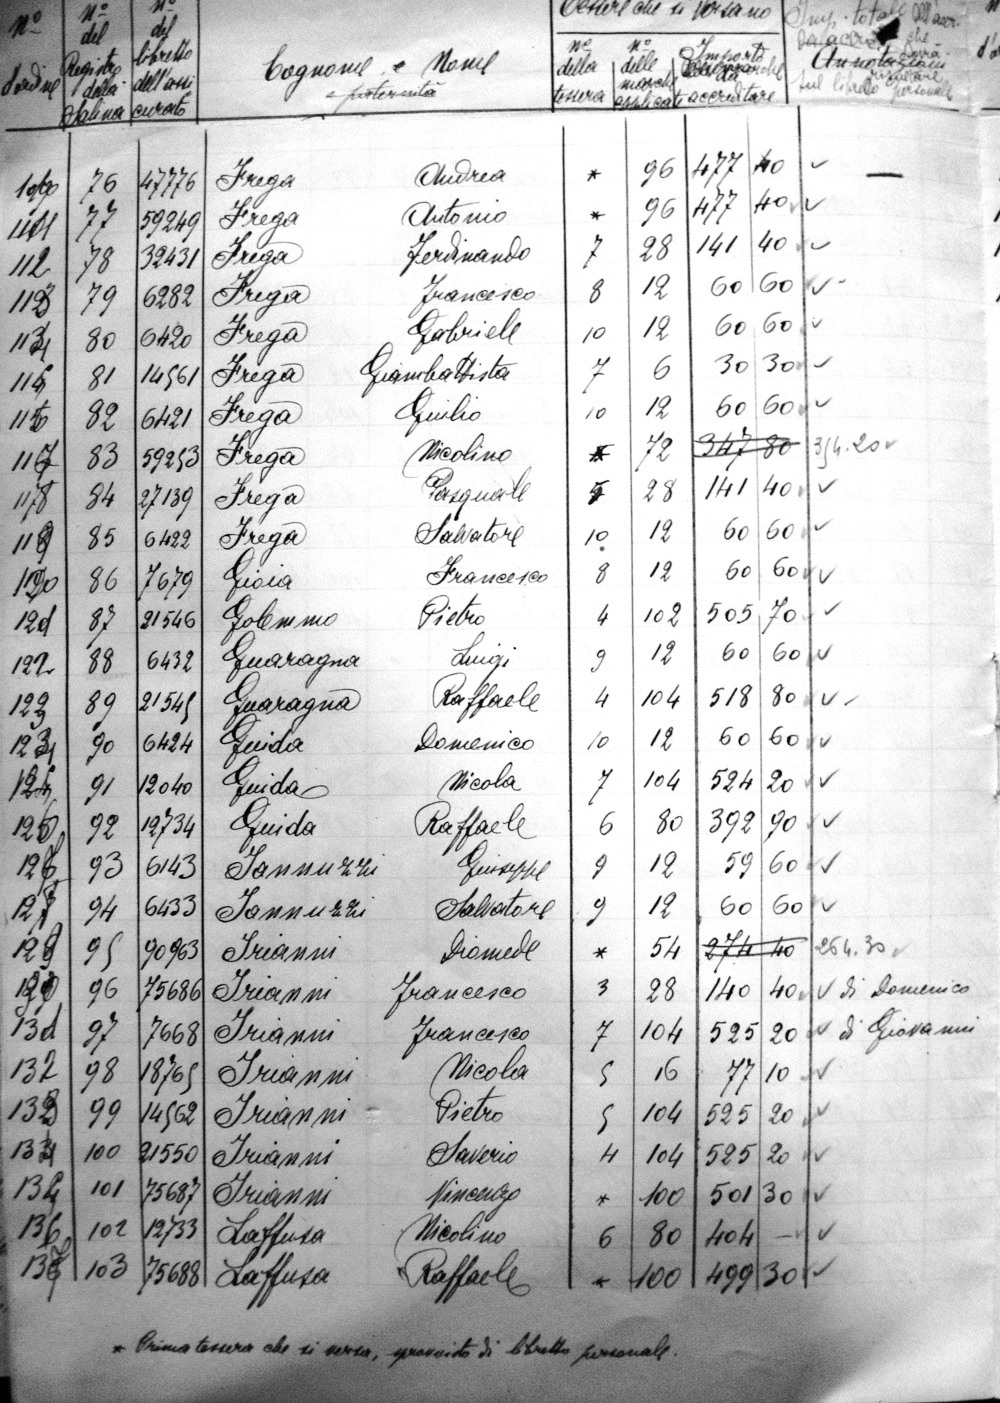 Nº d'ordine | Nº del Registro della Salina | Nº del libretto dell'assicurato | Cognome e Nome e paternità | Tessere che si versano | Annotazioni
nº della tessera | nº delle marche applicate | Importo da accreditare
Imp. totale dell'accr. che dovrà risultare sul libretto personale
76 47776 Frega Andrea * 96 477 40 ✓ —
77 59249 Frega Antonio * 96 477 40 ✓
112 78 32431 Frega Ferdinando 7 28 141 40 ✓
113 79 6282 Frega Francesco 8 12 60 60 ✓
114 80 6420 Frega Gabriele 10 12 60 60 ✓
115 81 14561 Frega Giambattista 7 6 30 30 ✓
116 82 6421 Frega Giulio 10 12 60 60 ✓
117 83 59253 Frega Nicolino * 72 347 80 354.20 ✓
118 84 27139 Frega Pasquale 28 141 40 ✓
119 85 6422 Frega Salvatore 10 12 60 60 ✓
120 86 7679 Gioia Francesco 8 12 60 60 ✓
121 87 21546 Golemmo Pietro 4 102 505 70 ✓
122 88 6432 Guaragna Luigi 9 12 60 60 ✓
123 89 21545 Guaragna Raffaele 4 104 518 80 ✓
124 90 6424 Guida Domenico 10 12 60 60 ✓
125 91 12040 Guida Nicola 7 104 524 20 ✓
126 92 12734 Guida Raffaele 6 80 392 90 ✓
127 93 6143 Iannuzzi Giuseppe 9 12 59 60 ✓
94 6433 Iannuzzi Salvatore 9 12 60 60 ✓
129 95 90963 Irianni Diomede * 54 274 40 264.30 ✓
130 96 75686 Irianni Francesco 3 28 140 40 ✓ di Domenico
131 97 7668 Irianni Francesco 7 104 525 20 ✓ di Giovanni
132 98 18765 Irianni Nicola 5 16 77 10 ✓
133 99 14562 Irianni Pietro 5 104 525 20 ✓
134 100 21550 Irianni Saverio 4 104 525 20 ✓
135 101 75687 Irianni Vincenzo * 100 501 30 ✓
136 102 12733 Laffusa Nicolino 6 80 404 — ✓
137 103 75688 Laffusa Raffaele * 100 499 30 ✓
* Prima tessera che si versa, provvisto di libretto personale.